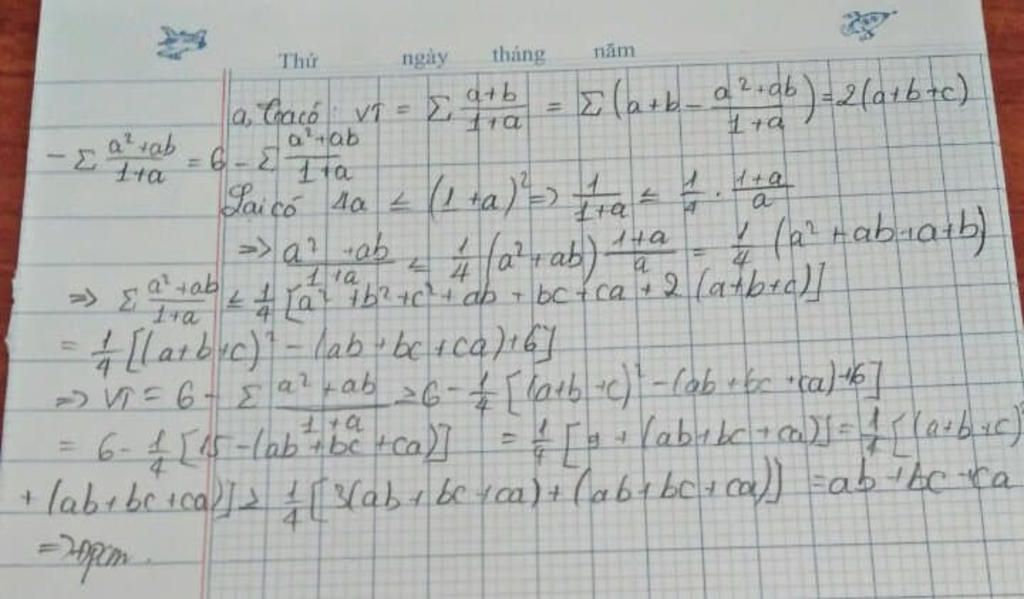 Thứ ngày tháng năm
a, Ta có: VT = Σ (a+b)/(1+a) = Σ (a+b - (a²+ab)/(1+a)) = 2(a+b+c)
- Σ (a²+ab)/(1+a) = 6 - Σ (a²+ab)/(1+a)
Lại có 4a ≤ (1+a)² => 1/(1+a) ≤ 1/4 . (1+a)/a
=> (a²+ab)/(1+a) ≤ 1/4 (a²+ab) (1+a)/a = 1/4 (a²+ab+a+b)
=> Σ (a²+ab)/(1+a) ≤ 1/4 [a²+b²+c²+ab+bc+ca+2(a+b+c)]
= 1/4 [(a+b+c)² - (ab+bc+ca)+6]
=> VT = 6 - Σ (a²+ab)/(1+a) ≥ 6 - 1/4 [(a+b+c)² - (ab+bc+ca)+6]
= 6 - 1/4 [15 - (ab+bc+ca)] = 1/4 [9 + (ab+bc+ca)] = 1/4 [(a+b+c)²
+ (ab+bc+ca)] ≥ 1/4 [3(ab+bc+ca) + (ab+bc+ca)] = ab+bc+ca
=> đpcm.